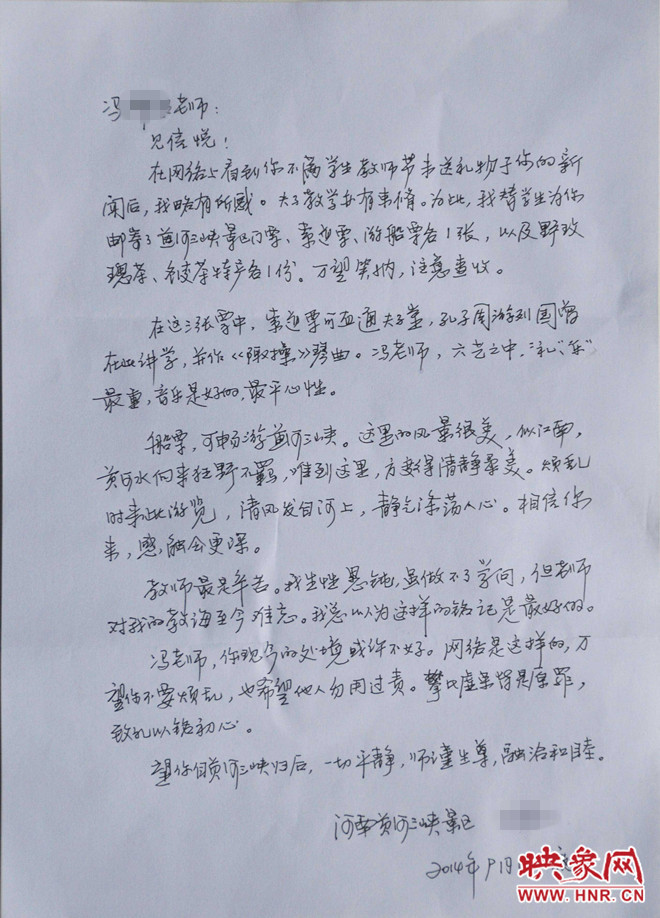 冯 老师:
见信悦!
在网络上看到你不满学生教师节未送礼物于你的新
闻后,我略有所感。夫子教学亦有束脩。为此,我替学生为你
邮寄了黄河三峡景区门票、索道票、游船票各1张,以及野玫
瑰茶、冬凌茶特产各1份。万望笑纳,注意查收。
在这三张票中,索道票可直通夫子堂,孔子周游列国曾
在此讲学,并作《陬操》琴曲。冯老师,六艺之中,"礼""乐"
最重,音乐是好的,最平心性。
船票,可畅游黄河三峡。这里的风景很美,似江南,
黄河水向来狂野不羁,唯到这里,方变得清静柔美。烦乱
时来此游览,清风发自河上,静气涤荡人心。相信你
来,感触会更深。
教师最是辛苦。我生性愚钝,虽做不了学问,但老师
对我的教诲至今难忘。我总以为这样的铭记是最好的。
冯老师,你现今的处境或许不好。网络是这样的,万
望你不要烦乱,也希望他人勿用过责。攀比虚荣皆是原罪,
致礼以铭初心。
望你自黄河三峡归后,一切平静,师谨生尊,融洽和睦。
河南黄河三峡景区
2014年9月
映象网
WWW.HNR.CN